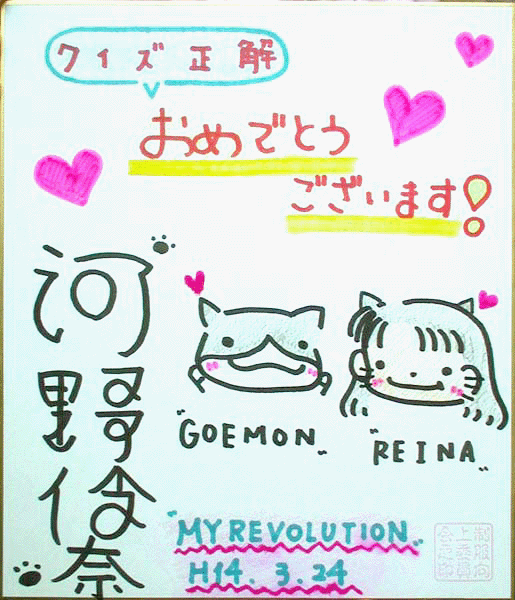 クイズ正解
おめでとう
ございます!
河野伶奈
"GOEMON"
"REINA"
"MY REVOLUTION"
H14.3.24